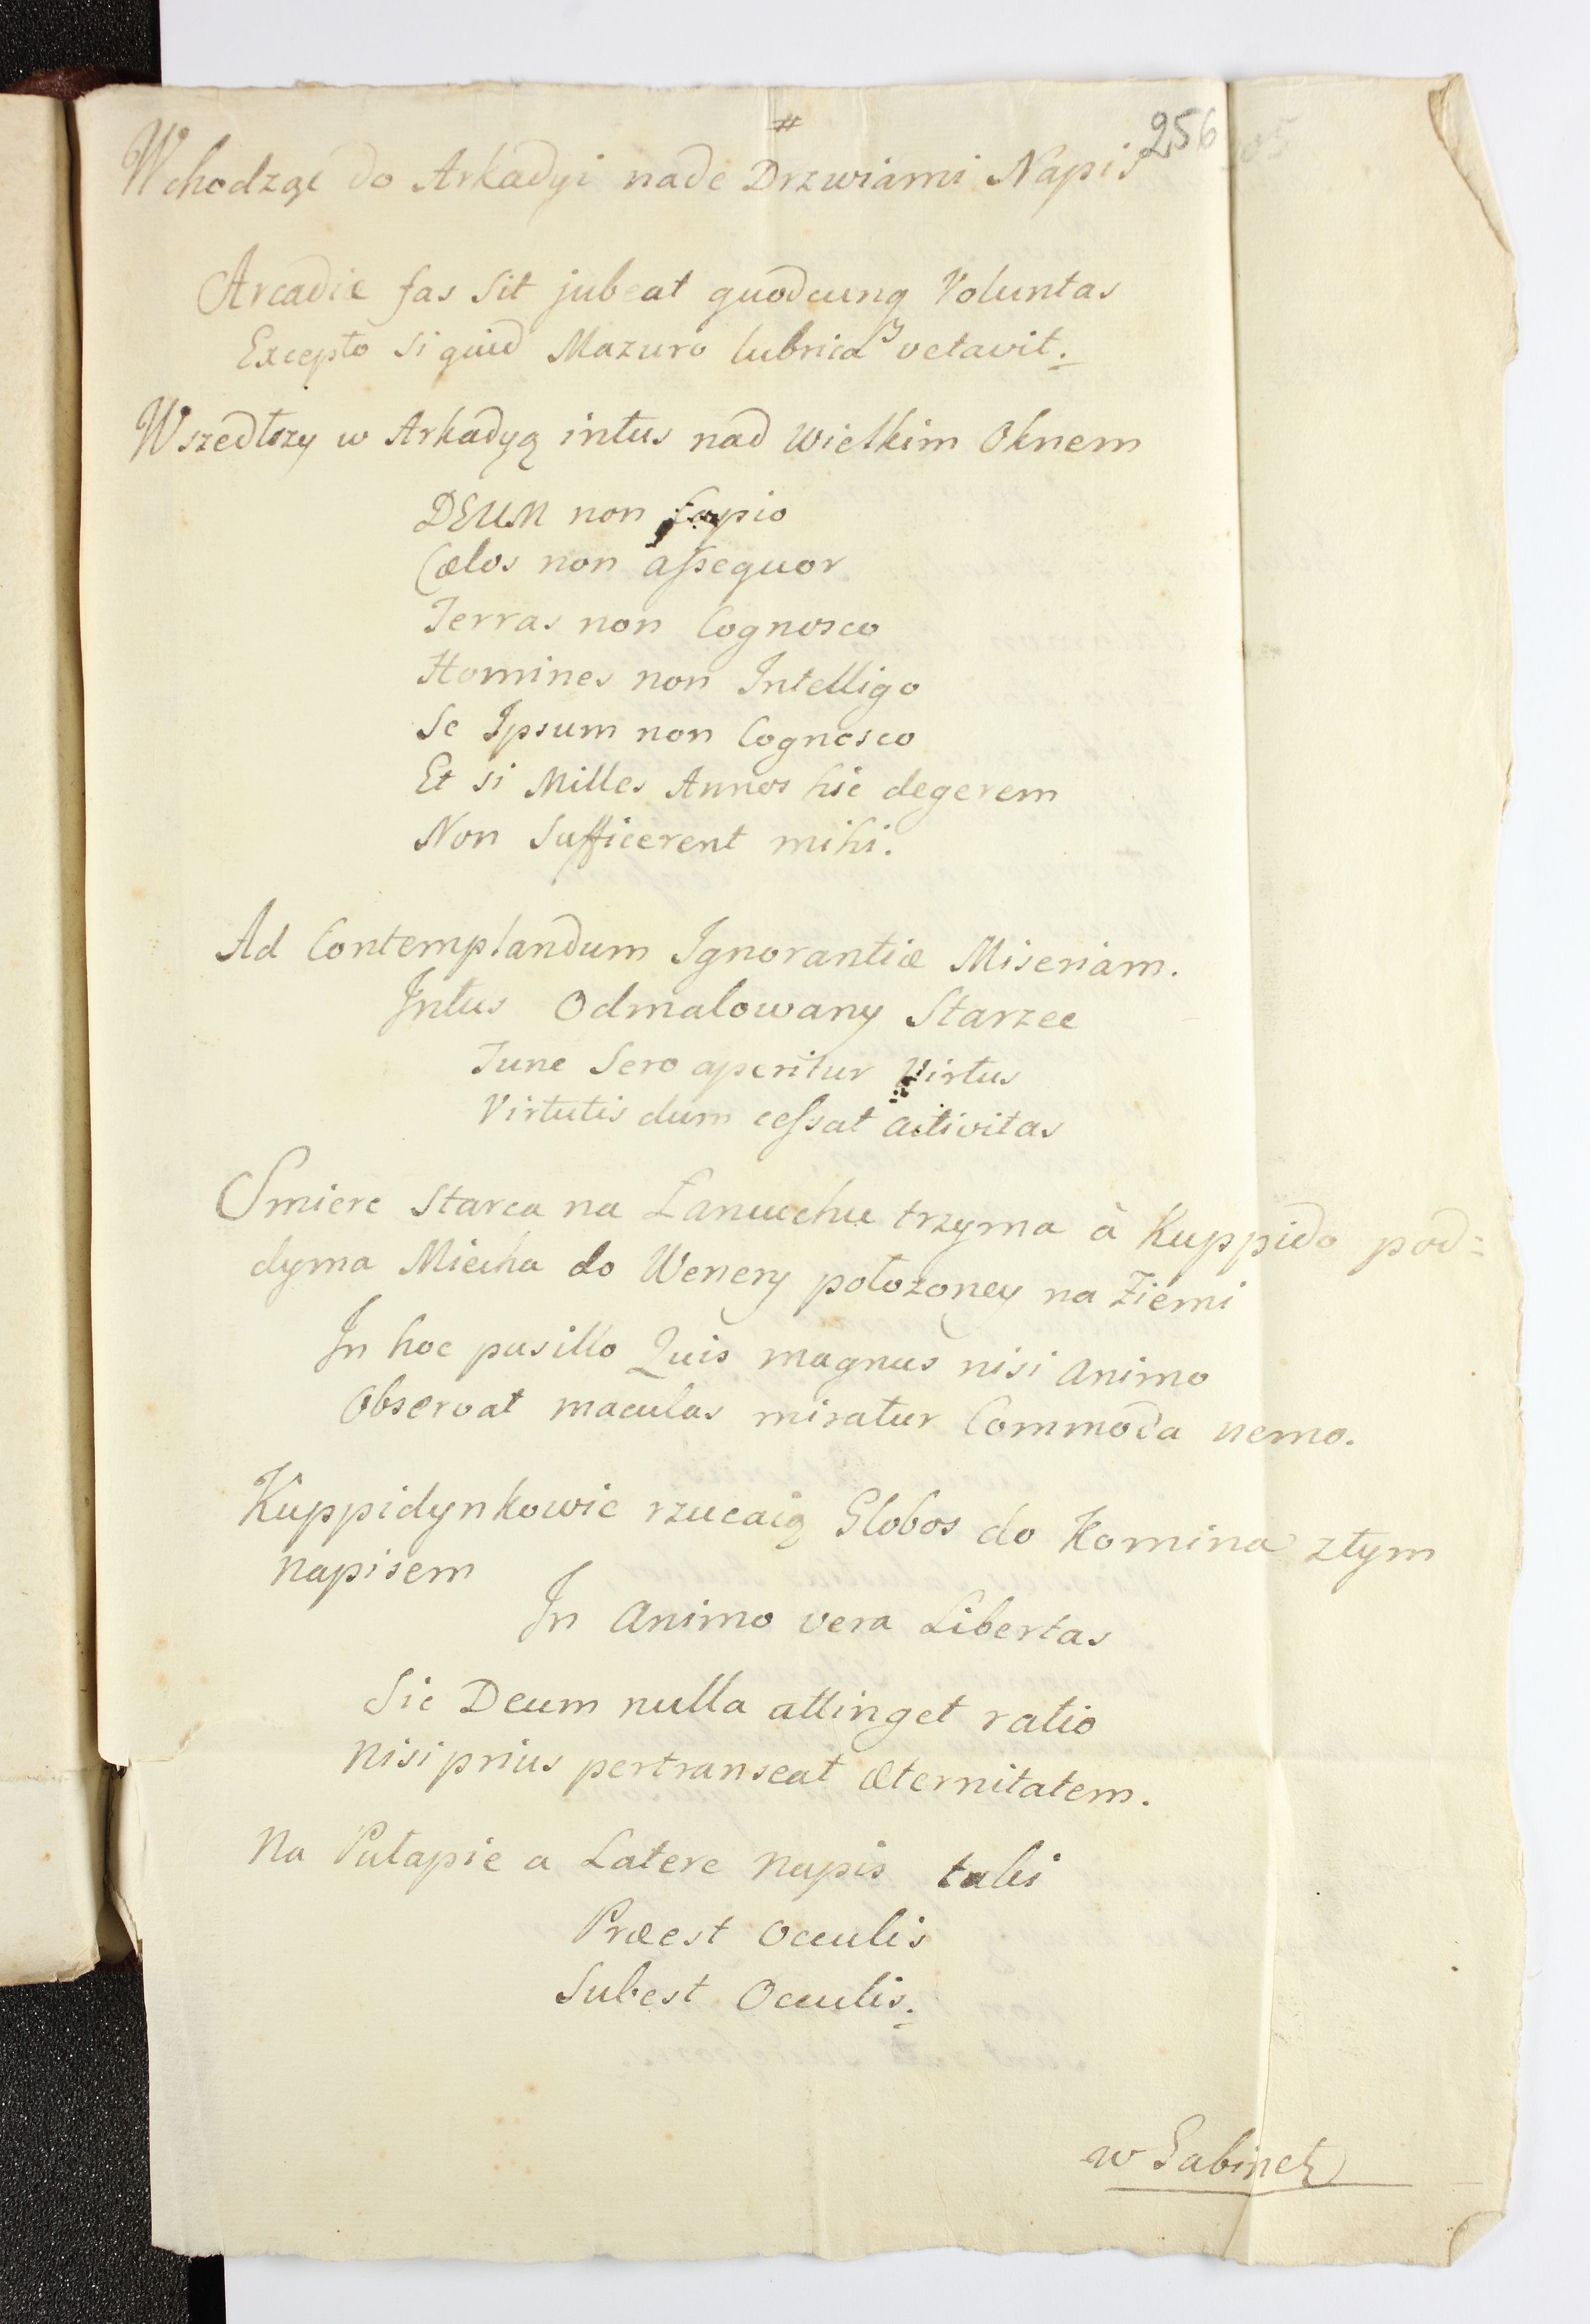 #
256
Wchodząc do Arkadyi nade Drzwiami Napis
Arcadiæ fas Sit jubeat quodcunq Voluntas
Excepto Si quid Mazuro lubrica vetavit.
Wszedłszy w Arkadyą intus nad Wielkim Oknem
DEUM non Capio
Cælos non assequor
Terras non Cognosco
Homines non Intelligo
Se Ipsum non Cognosco
Et si Milles Annos hic degerem
Non Sufficerent mihi.
Ad Contemplandum Ignorantiæ Miseriam.
Intus Odmalowany Starzec
Tunc Sero aperitur Virtus
Virtutis dum cessat activitas
Smierc Starca na Łancuchu trzyma à Kuppido pod=
dyma Miecha do Wenery położoney na Ziemi
In hoc pusillo Quis magnus nisi Animo
Observat maculas miratur Commoda nemo.
Kuppidynkowie rzucaią Globos do Komina ztym
Napisem
In Animo vera Libertas
Sic Deum nulla attinget ratio
Nisi prius pertranseat æternitatem.
Na Pułapie a Latere Napis taki
Præest Occulis
Subest Occulis.
w Gabinet